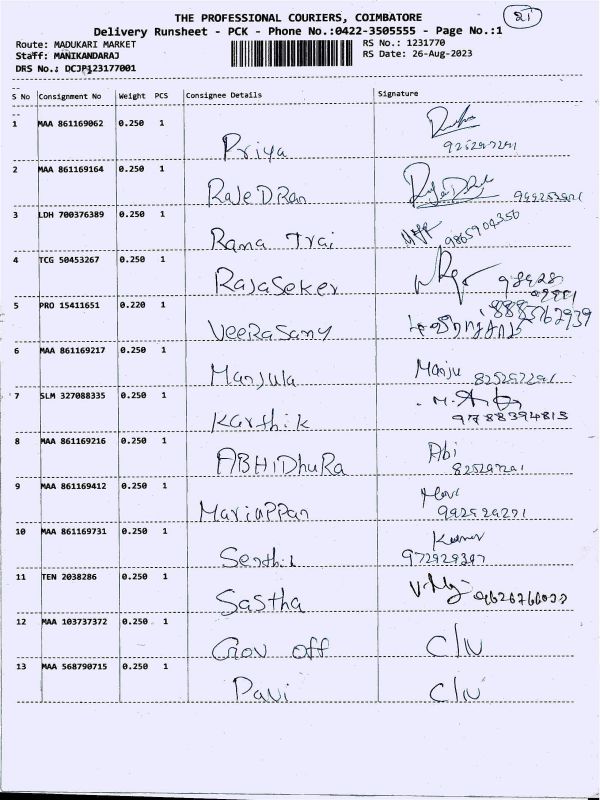 THE PROFESSIONAL COURIERS, COIMBATORE
21
Delivery Runsheet - PCK - Phone No.:0422-3505555 - Page No.:1
Route: MADUKARI MARKET
RS No.: 1231770
Staff: MANIKANDARAJ
RS Date: 26-Aug-2023
DRS No.: DCJP123177001
S No Consignment No Weight PCS Consignee Details Signature
1 MAA 861169062 0.250 1 Priya
2 MAA 861169164 0.250 1 RajeDRan
3 LDH 700376389 0.250 1 Rama Trai 9865904356
4 TCG 50453267 0.250 1 RajaSeker
5 PRO 15411651 0.220 1 VeeRaSamy 8885762939
6 MAA 861169217 0.250 1 Manjula Manju
7 SLM 327088335 0.250 1 Karthik 9788394815
8 MAA 861169216 0.250 1 ABHiDhuRa Abi
9 MAA 861169412 0.250 1 MariaPPan
10 MAA 861169731 0.250 1 Senthil
11 TEN 2038286 0.250 1 Sastha
12 MAA 103737372 0.250 1 Gov off
13 MAA 568790715 0.250 1 Pavi